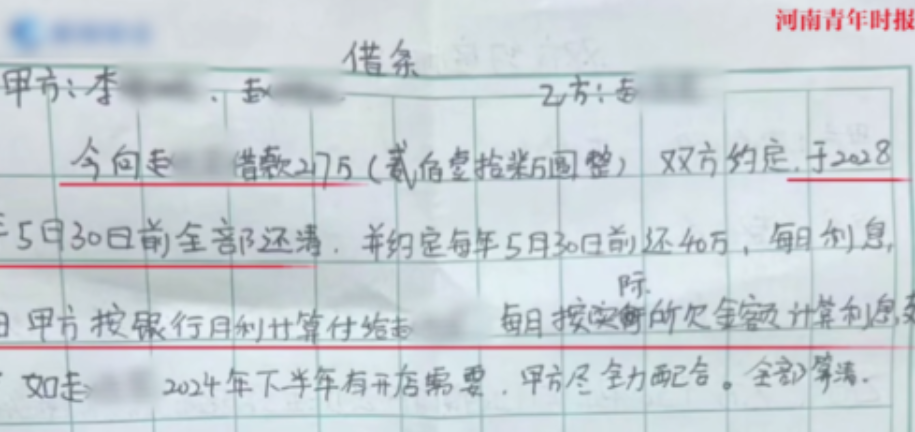 河南青年时报
借条
甲方：李 、赵 乙方：赵
今向赵 借款217万（贰佰壹拾柒万圆整） 双方约定.于2028
年5月30日前全部还清.并约定每年5月30日前还40万，每月利息，
由甲方按银行月利计算付给赵 每月按实际所欠金额计算利息
如赵 2024年下半年有开店需要.甲方尽全力配合。全部算清.